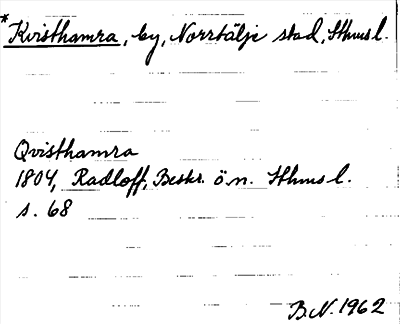 *Kvisthamra, by, Norrtälje stad, Sthms l.
Qvisthamra
1804, Radloff, Beskr. ö. n. Sthms l.
s. 68
B.N. 1962